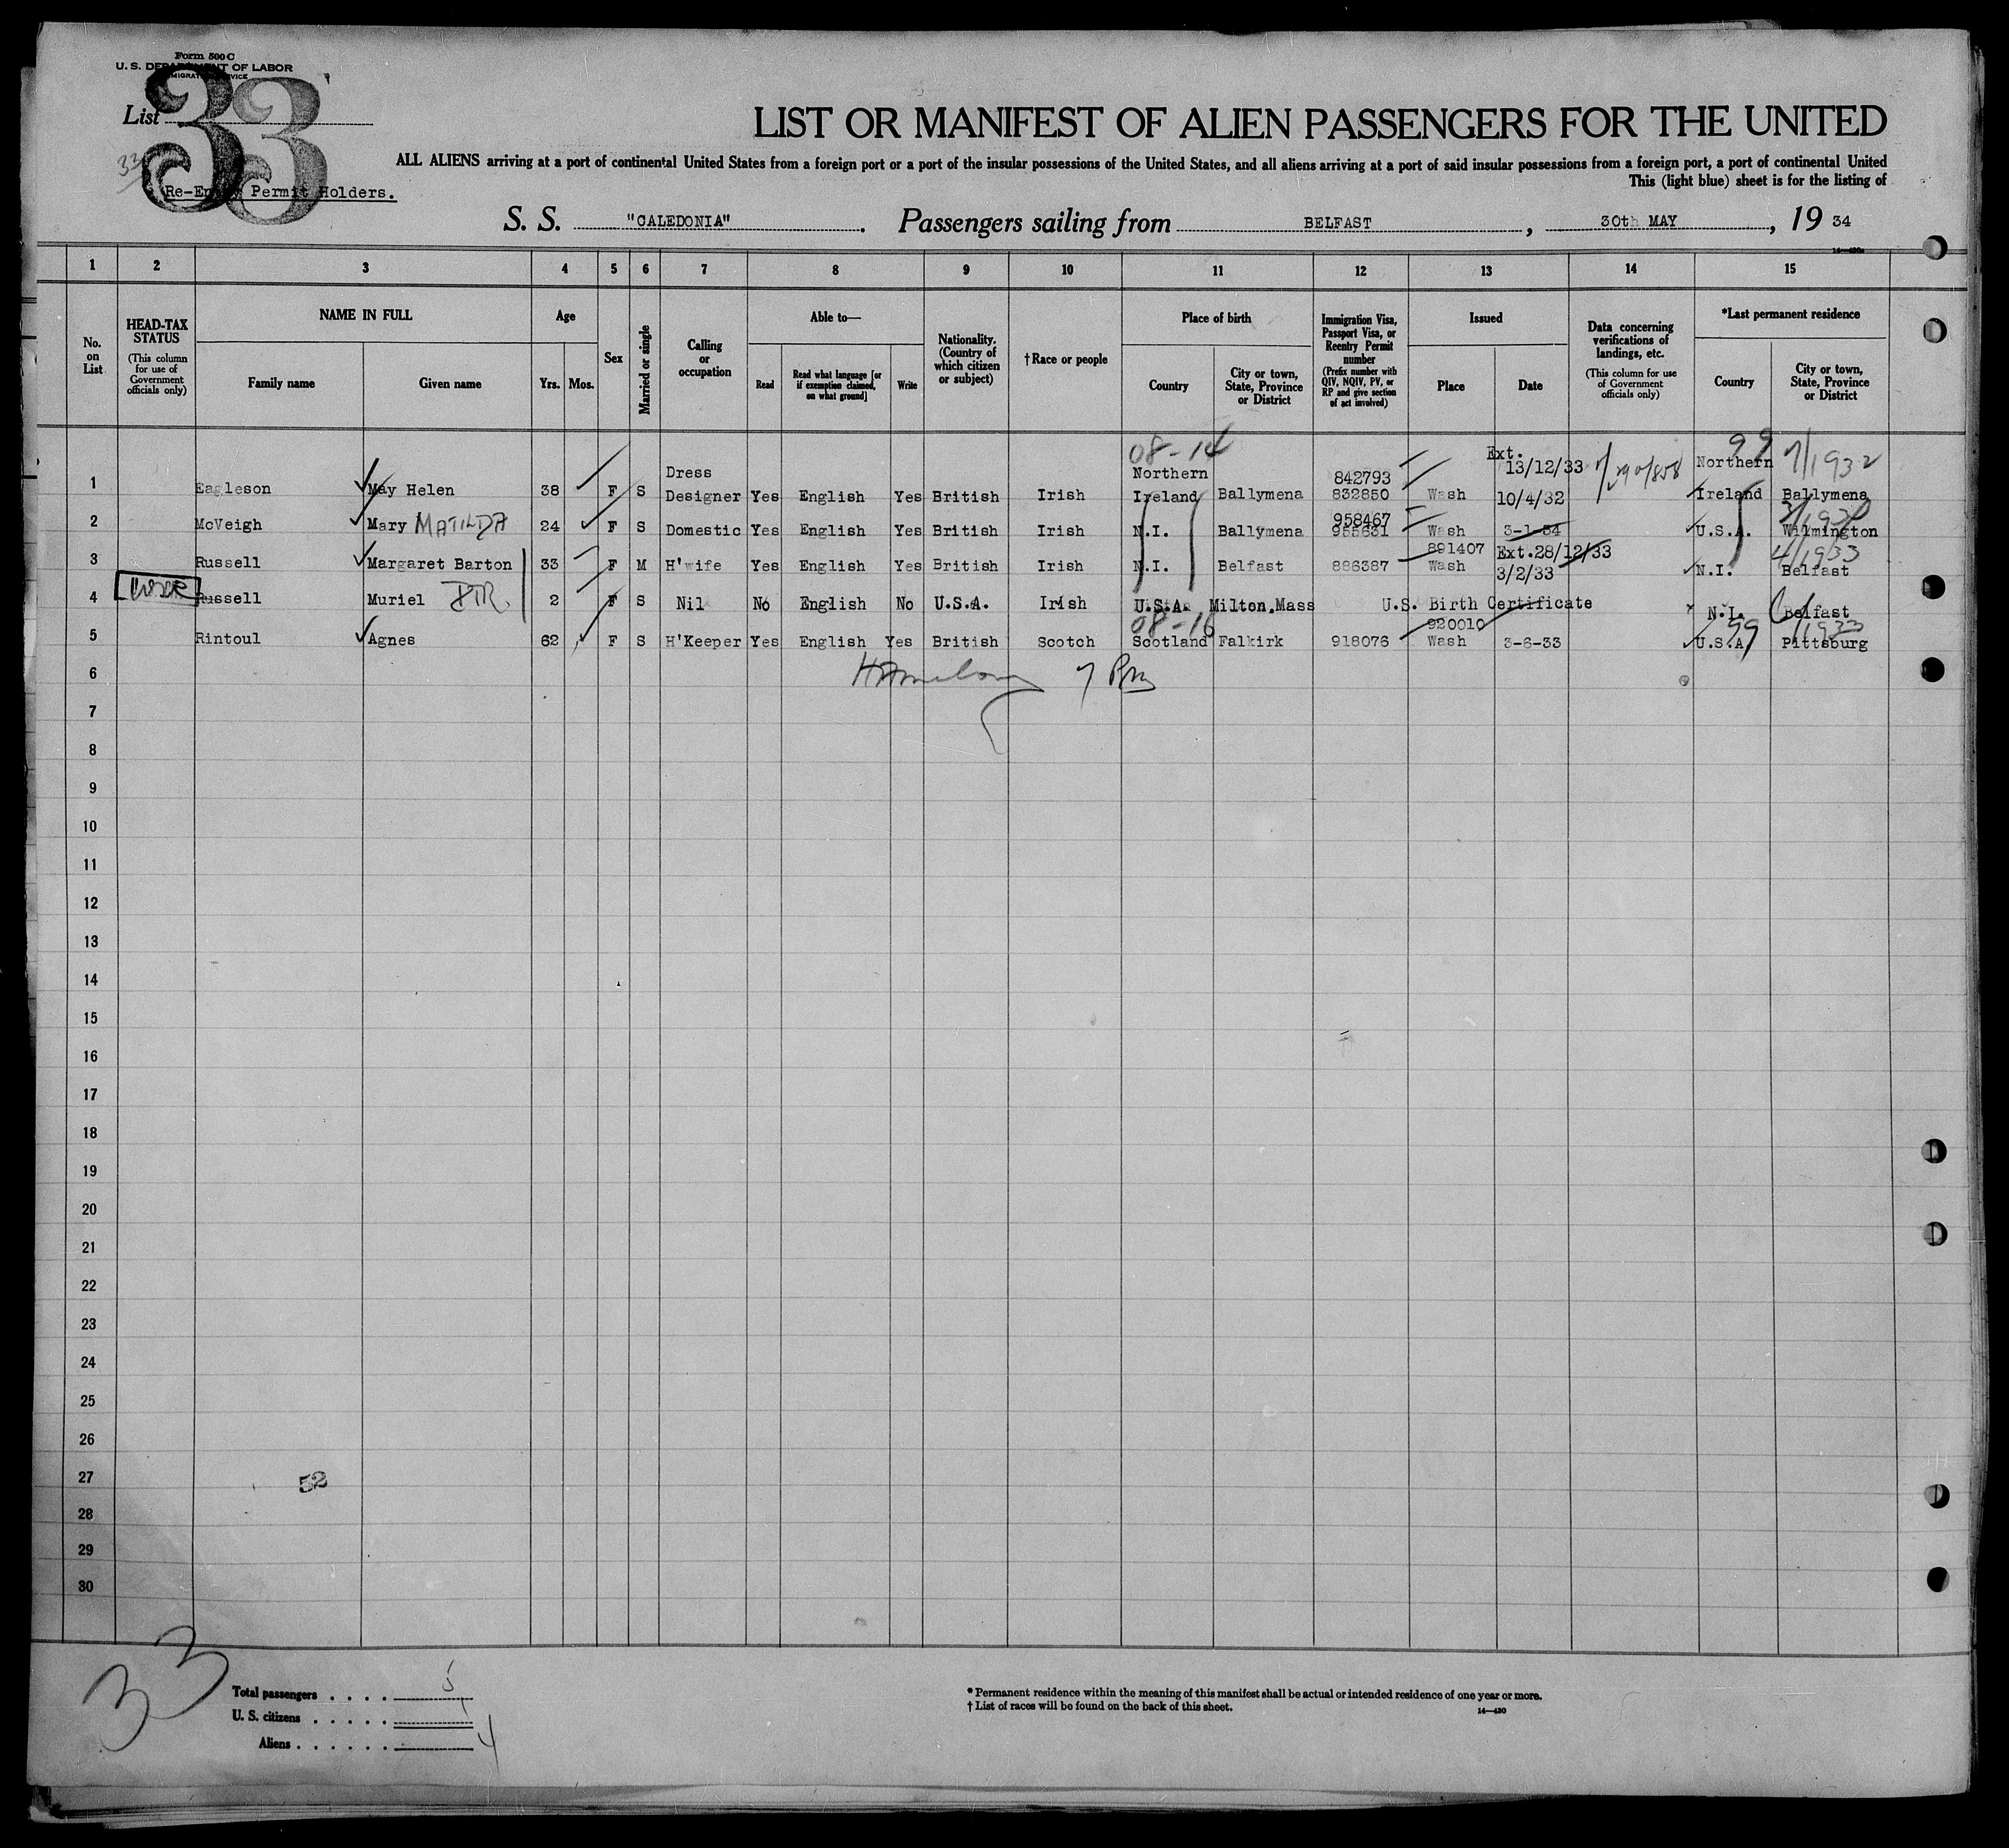 Form 500 C
U. S. DEPARTMENT OF LABOR
IMMIGRATION SERVICE
List 33
33
Re-Entry Permit Holders.
LIST OR MANIFEST OF ALIEN PASSENGERS FOR THE UNITED
ALL ALIENS arriving at a port of continental United States from a foreign port or a port of the insular possessions of the United States, and all aliens arriving at a port of said insular possessions from a foreign port, a port of continental United
This (light blue) sheet is for the listing of
S. S. "CALEDONIA". Passengers sailing from BELFAST, 30th MAY, 19 34
1 2 3 4 5 6 7 8 9 10 11 12 13 14 15
No. on List
HEAD-TAX STATUS (This column for use of Government officials only)
NAME IN FULL
Family name Given name
Age
Yrs. Mos.
Sex
Married or single
Calling or occupation
Able to—
Read Read what language [or if exemption claimed, on what ground] Write
Nationality. (Country of which citizen or subject)
†Race or people
Place of birth
Country City or town, State, Province or District
Immigration Visa, Passport Visa, or Reentry Permit number (Prefix number with QIV, NQIV, PV, or RP and give section of act involved)
Issued
Place Date
Data concerning verifications of landings, etc. (This column for use of Government officials only)
*Last permanent residence
Country City or town, State, Province or District
08-14 Ext. 99
Dress Northern 842793 13/12/33 Northern 7/1932
1 Eagleson May Helen 38 F S Designer Yes English Yes British Irish Ireland Ballymena 832850 Wash 10/4/32 Ireland Ballymena
958467
2 McVeigh Mary MATILDA 24 F S Domestic Yes English Yes British Irish N.I. Ballymena 955631 Wash 3-1-34 U.S.A. Wilmington
891407 Ext.28/12/33 4/1933
3 Russell Margaret Barton 33 F M H'wife Yes English Yes British Irish N.I. Belfast 886387 Wash 3/2/33 N.I. Belfast
4 Russell Muriel 2 F S Nil No English No U.S.A. Irish U.S.A. Milton.Mass U.S. Birth Certificate N.I. Belfast
08-16 920010 99 6/1933
5 Rintoul Agnes 62 F S H'Keeper Yes English Yes British Scotch Scotland Falkirk 918076 Wash 3-6-33 U.S.A. Pittsburg
6
7
8
9
10
11
12
13
14
15
16
17
18
19
20
21
22
23
24
25
26
27 52
28
29
30
33
Total passengers . . . . 5
U. S. citizens . . . . . 1
Aliens . . . . . . 4
* Permanent residence within the meaning of this manifest shall be actual or intended residence of one year or more.
† List of races will be found on the back of this sheet.
14—430